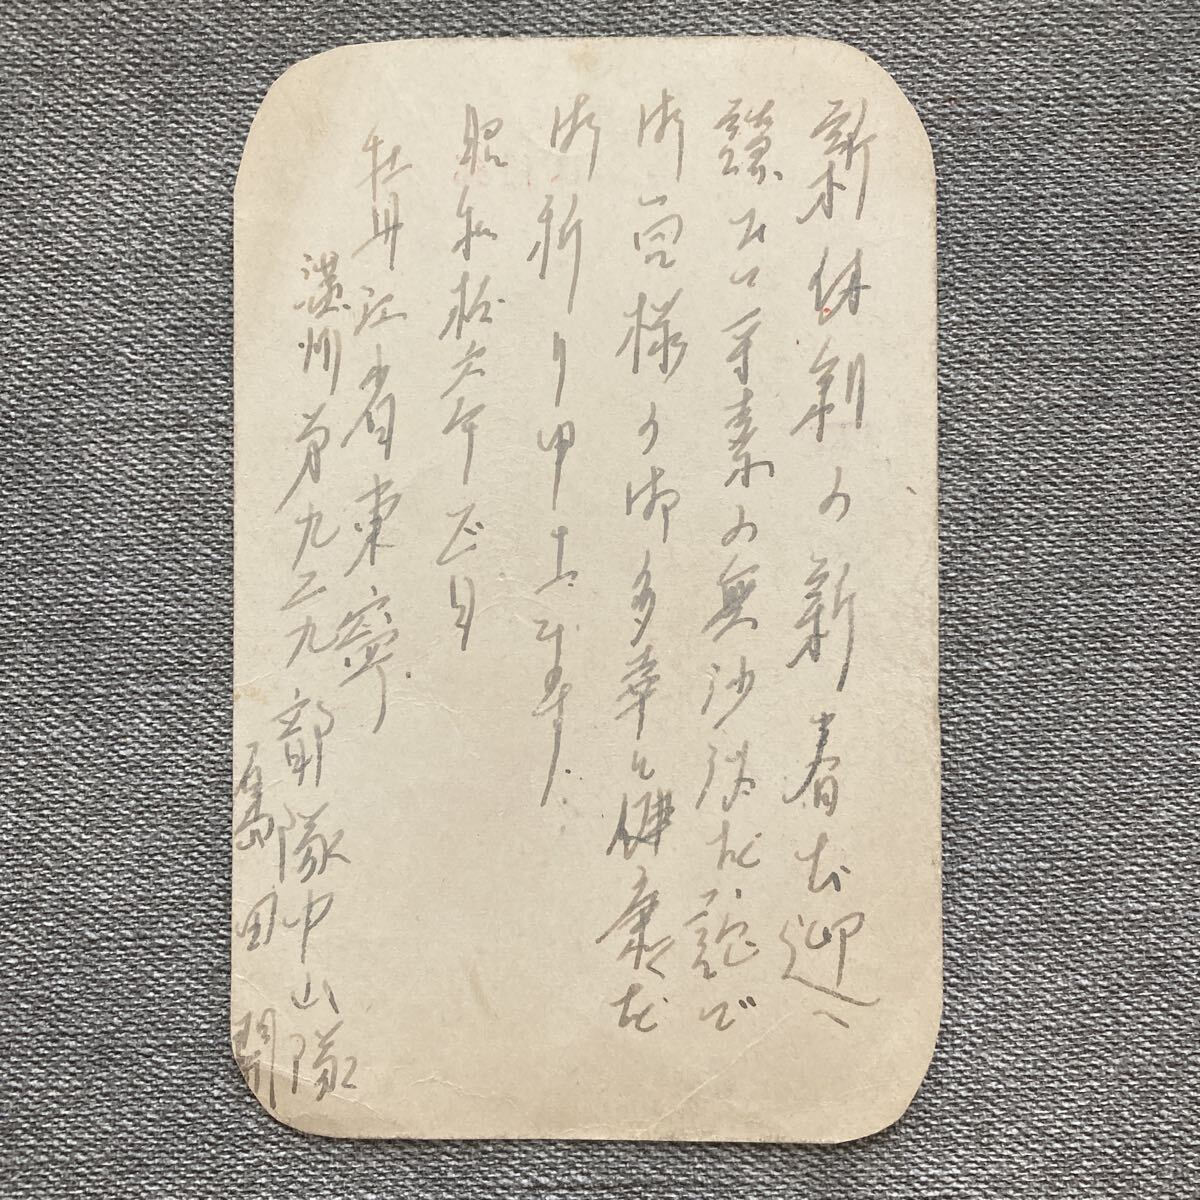 新体制の新春を迎へ
謹みて平素の無沙汰を詫で
御一同様の御多幸と健康を
御祈り申上ます
昭和拾六年正月
牡丹江省東寧
満洲第九二九部隊中山隊
島田